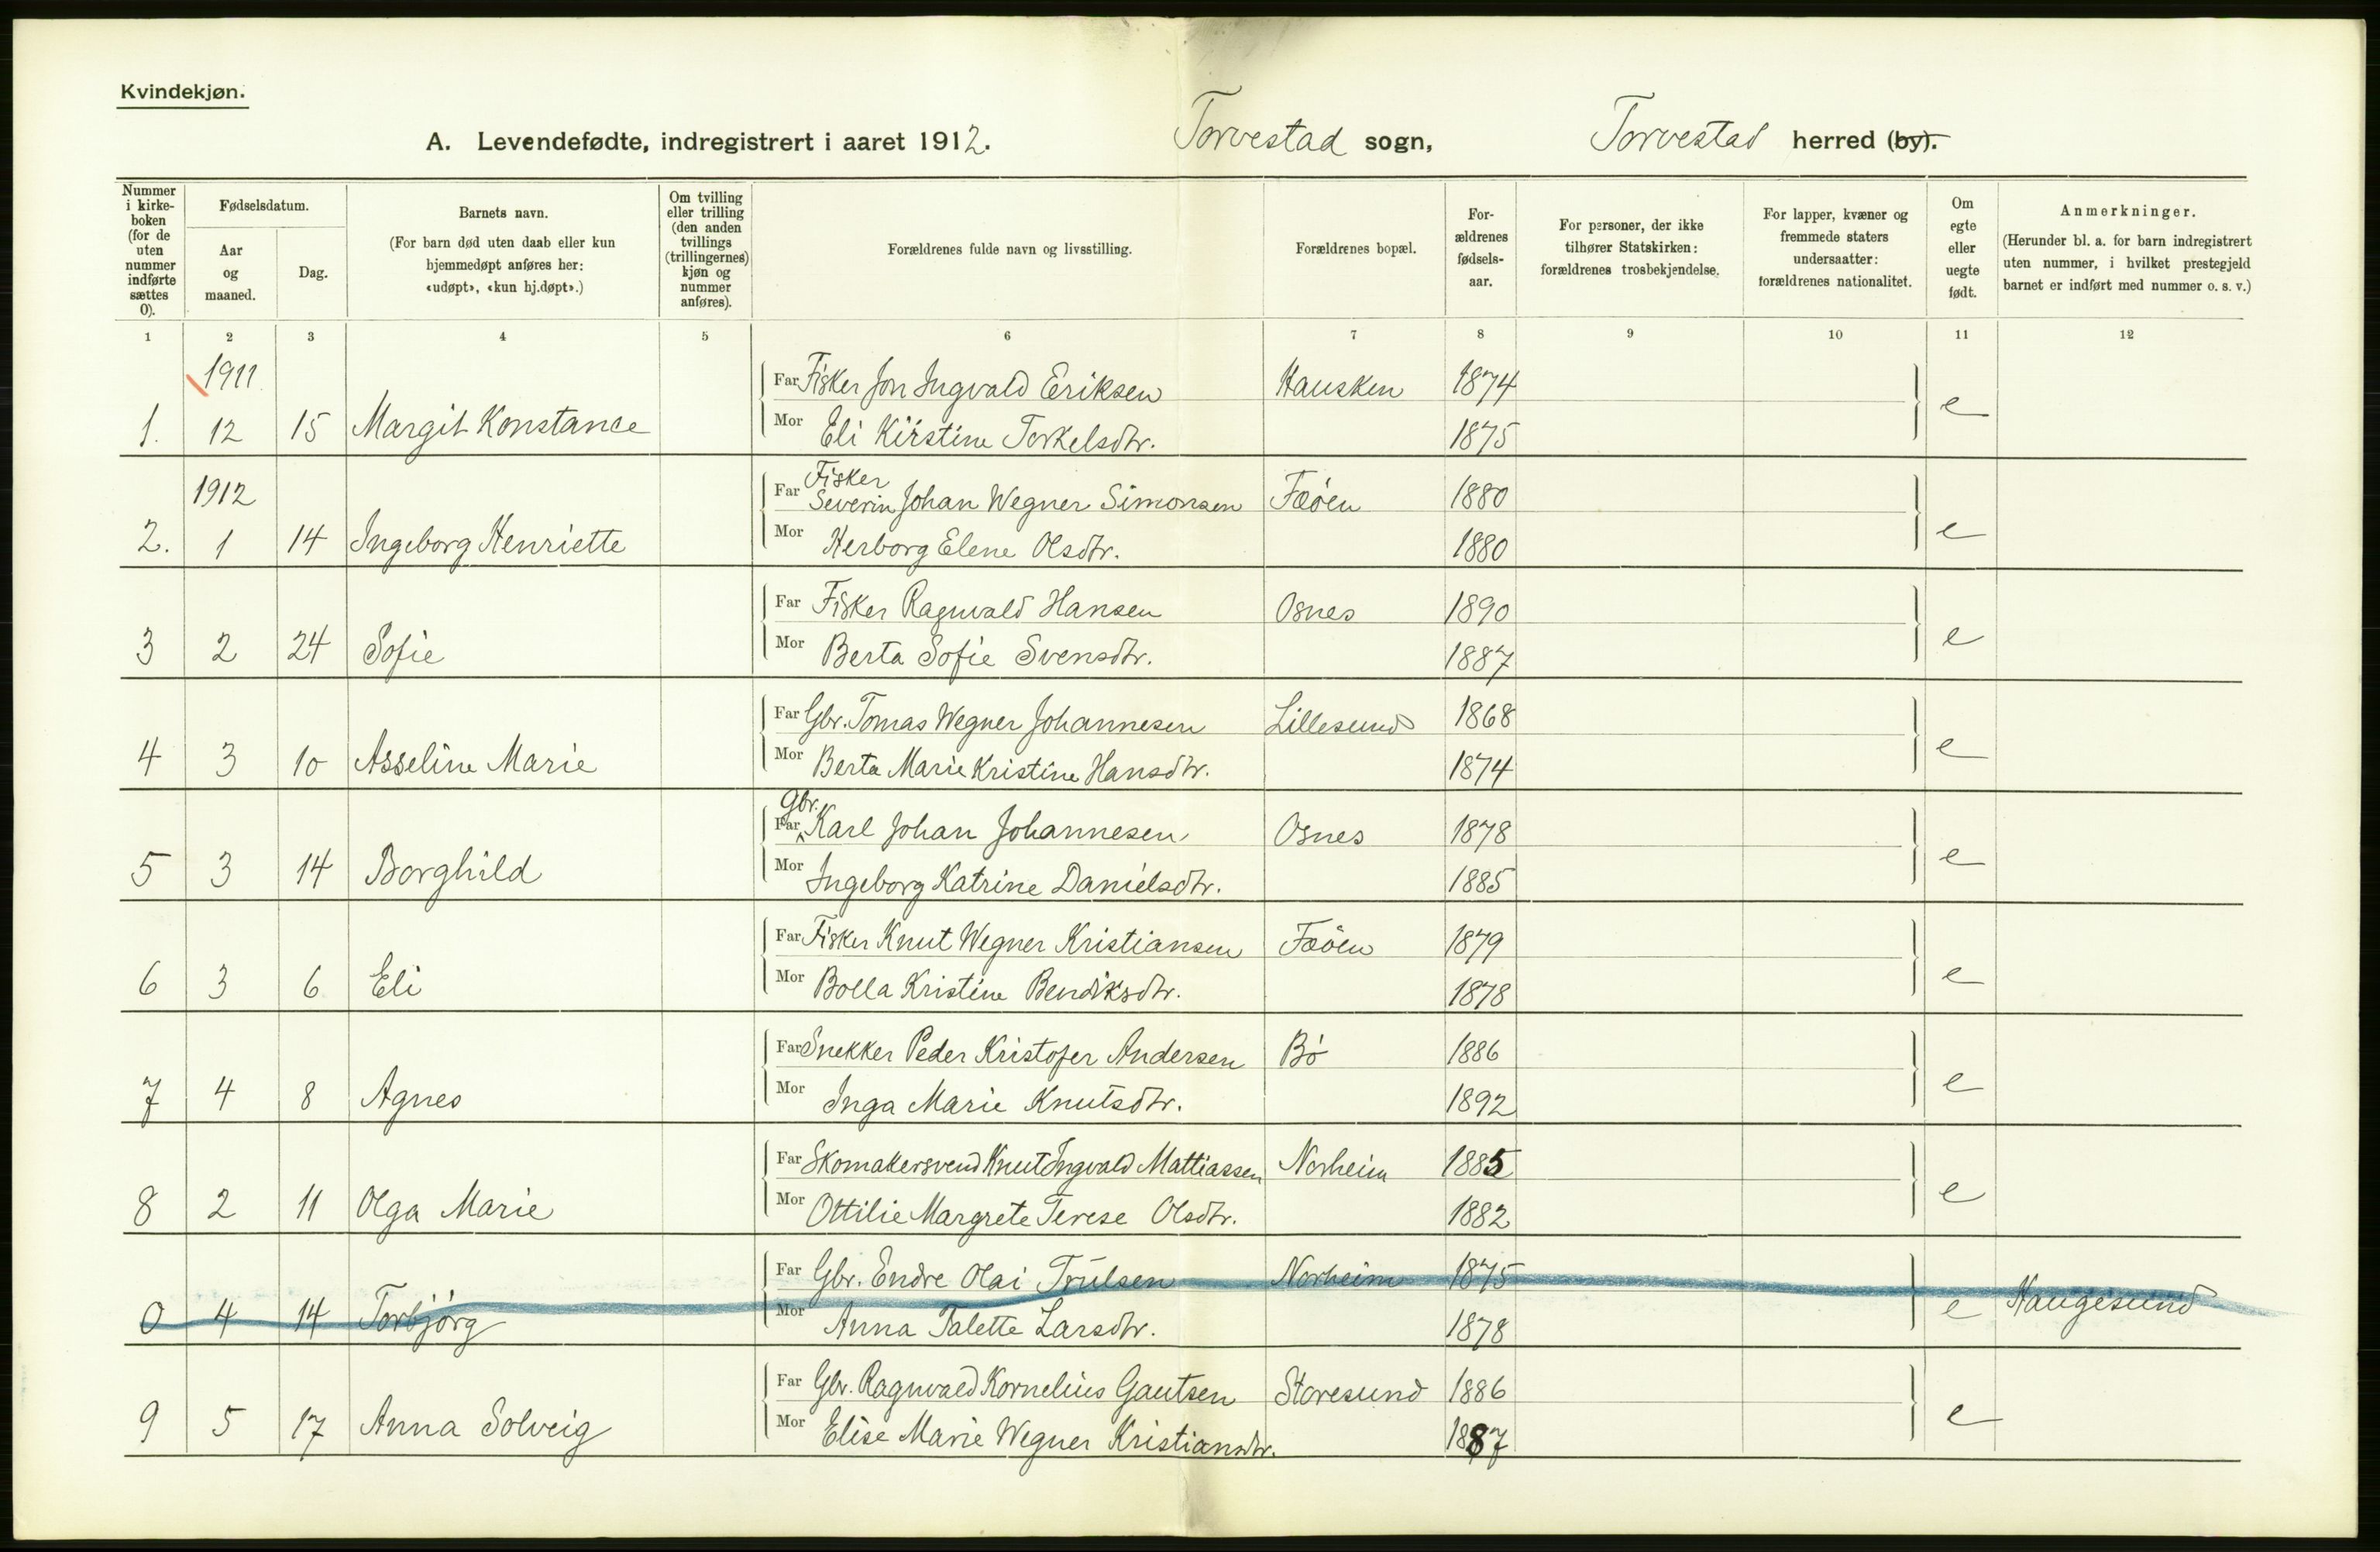 Kvindekjøn.
A. Levendefødte, indregistrert i aaret 1912. Torvestad sogn, Torvestad herred (by).
Nummer i kirkeboken (for de uten nummer indførte sættes 0).
Fødselsdatum.
Aar og maaned.
Dag.
Barnets navn.
(For barn død uten daab eller kun hjemmedøpt anføres her: «udøpt», «kun hj.døpt».)
Om tvilling eller trilling (den anden tvillings (trillingernes) kjøn og nummer anføres).
Forældrenes fulde navn og livsstilling.
Forældrenes bopæl.
Forældrenes fødselsaar.
For personer, der ikke tilhører Statskirken: forældrenes trosbekjendelse.
For lapper, kvæner og fremmede staters undersaatter: forældrenes nationalitet.
Om egte eller uegte født.
Anmerkninger.
(Herunder bl. a. for barn indregistrert uten nummer, i hvilket prestegjeld barnet er indført med nummer o. s. v.)
1 2 3 4 5 6 7 8 9 10 11 12
1911
Far Fisker Jon Ingvald Eriksen Hausken 1874
1. 12 15 Margit Konstance Mor Eli Kirstine Torkelsdtr. 1875 e
1912
Far Fisker Severin Johan Wegner Simonsen Fæöen 1880
2. 1 14 Ingeborg Henriette Mor Herborg Elene Olsdtr. 1880 e
Far Fisker Ragnvald Hansen Osnes 1890
3 2 24 Sofie Mor Berta Sofie Svensdtr. 1887 e
Far Gbr. Tomas Wegner Johannesen Lillesund 1868
4 3 10 Asseline Marie Mor Berta Marie Kristine Hansdtr. 1874 e
Far Gbr. Karl Johan Johannesen Osnes 1878
5 3 14 Borghild Mor Ingeborg Katrine Danielsdtr. 1885 e
Far Fisker Knut Wegner Kristiansen Fæöen 1879
6 3 6 Eli Mor Bolla Kristine Bendiksdtr. 1878 e
Far Snekker Peder Kristofer Andersen Bö 1886
7 4 8 Agnes Mor Inga Marie Knutsdtr. 1892 e
Far Skomakersvend Knut Ingvald Mattiassen Norheim 1885
8 2 11 Olga Marie Mor Ottilie Margrete Terese Olsdtr. 1882 e
Far Gbr. Endre Olai Trulsen Norheim 1875
0 4 14 Torbjörg Mor Anna Talette Larsdtr. 1878 e Haugesund
Far Gbr. Ragnvald Kornelius Gautsen Storesund 1886
9 5 17 Anna Solveig Mor Elise Marie Wegner Kristiansdtr. 1887 e